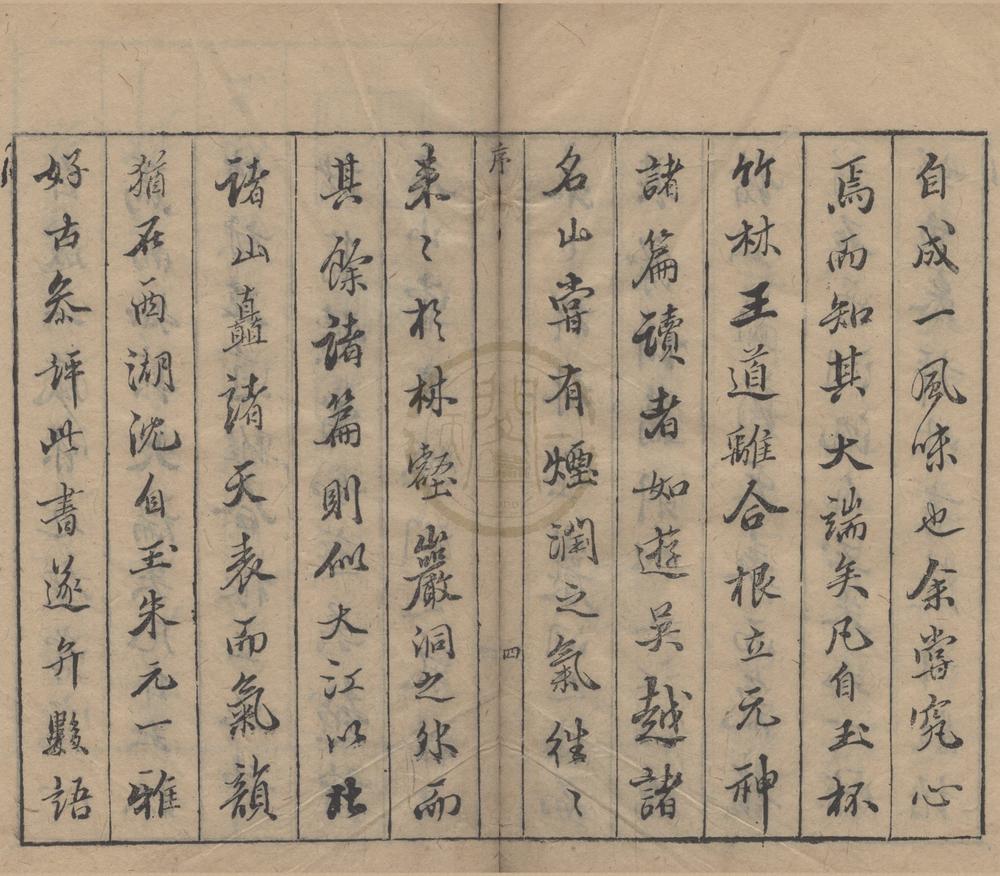 自成一風味也余嘗究心
焉而知其大端矣凡自玉杯
竹林王道離合根立元神
諸篇讀者如遊吳越諸
名山嘗有煙潤之氣徃〻
序
四
來〻於林壑巖洞之外而
其餘諸篇則似大江以北
諸山矗諸天表而氣韻
猶在西湖沈自玉朱元一雅
好古叅評此書遂弁數語